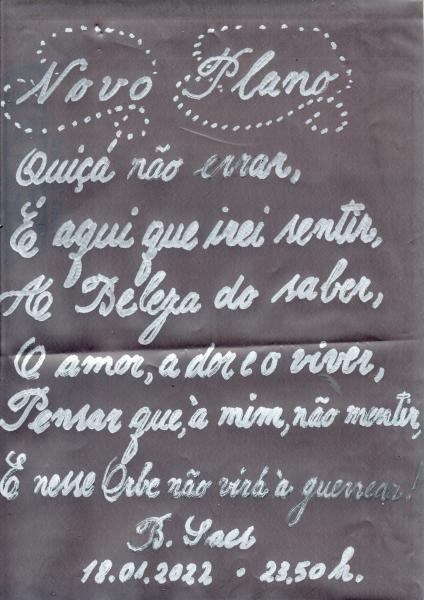 Novo Plano
Quiçá não errar,
É aqui que irei sentir,
A Beleza do saber,
O amor, a dor e o viver,
Pensar que, à mim, não mentir,
E nesse Orbe não virá à guerrear!
B. Saes
18.01.2022 . 23,50 h.